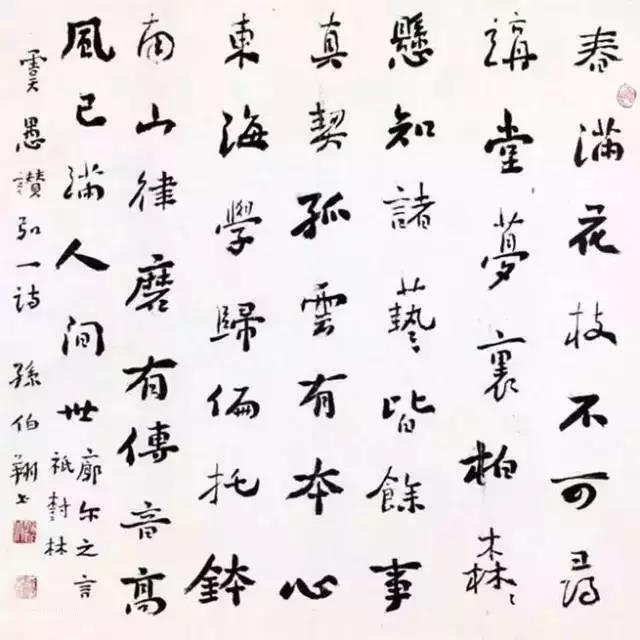 春滿花枝不可尋
講堂夢裏柏森森
懸知諸藝皆餘事
真契孤雲有本心
東海學歸偏托鉢
南山律磨有傳音高
風已滿人間世
虞愚讚弘一诗 孫伯翔书